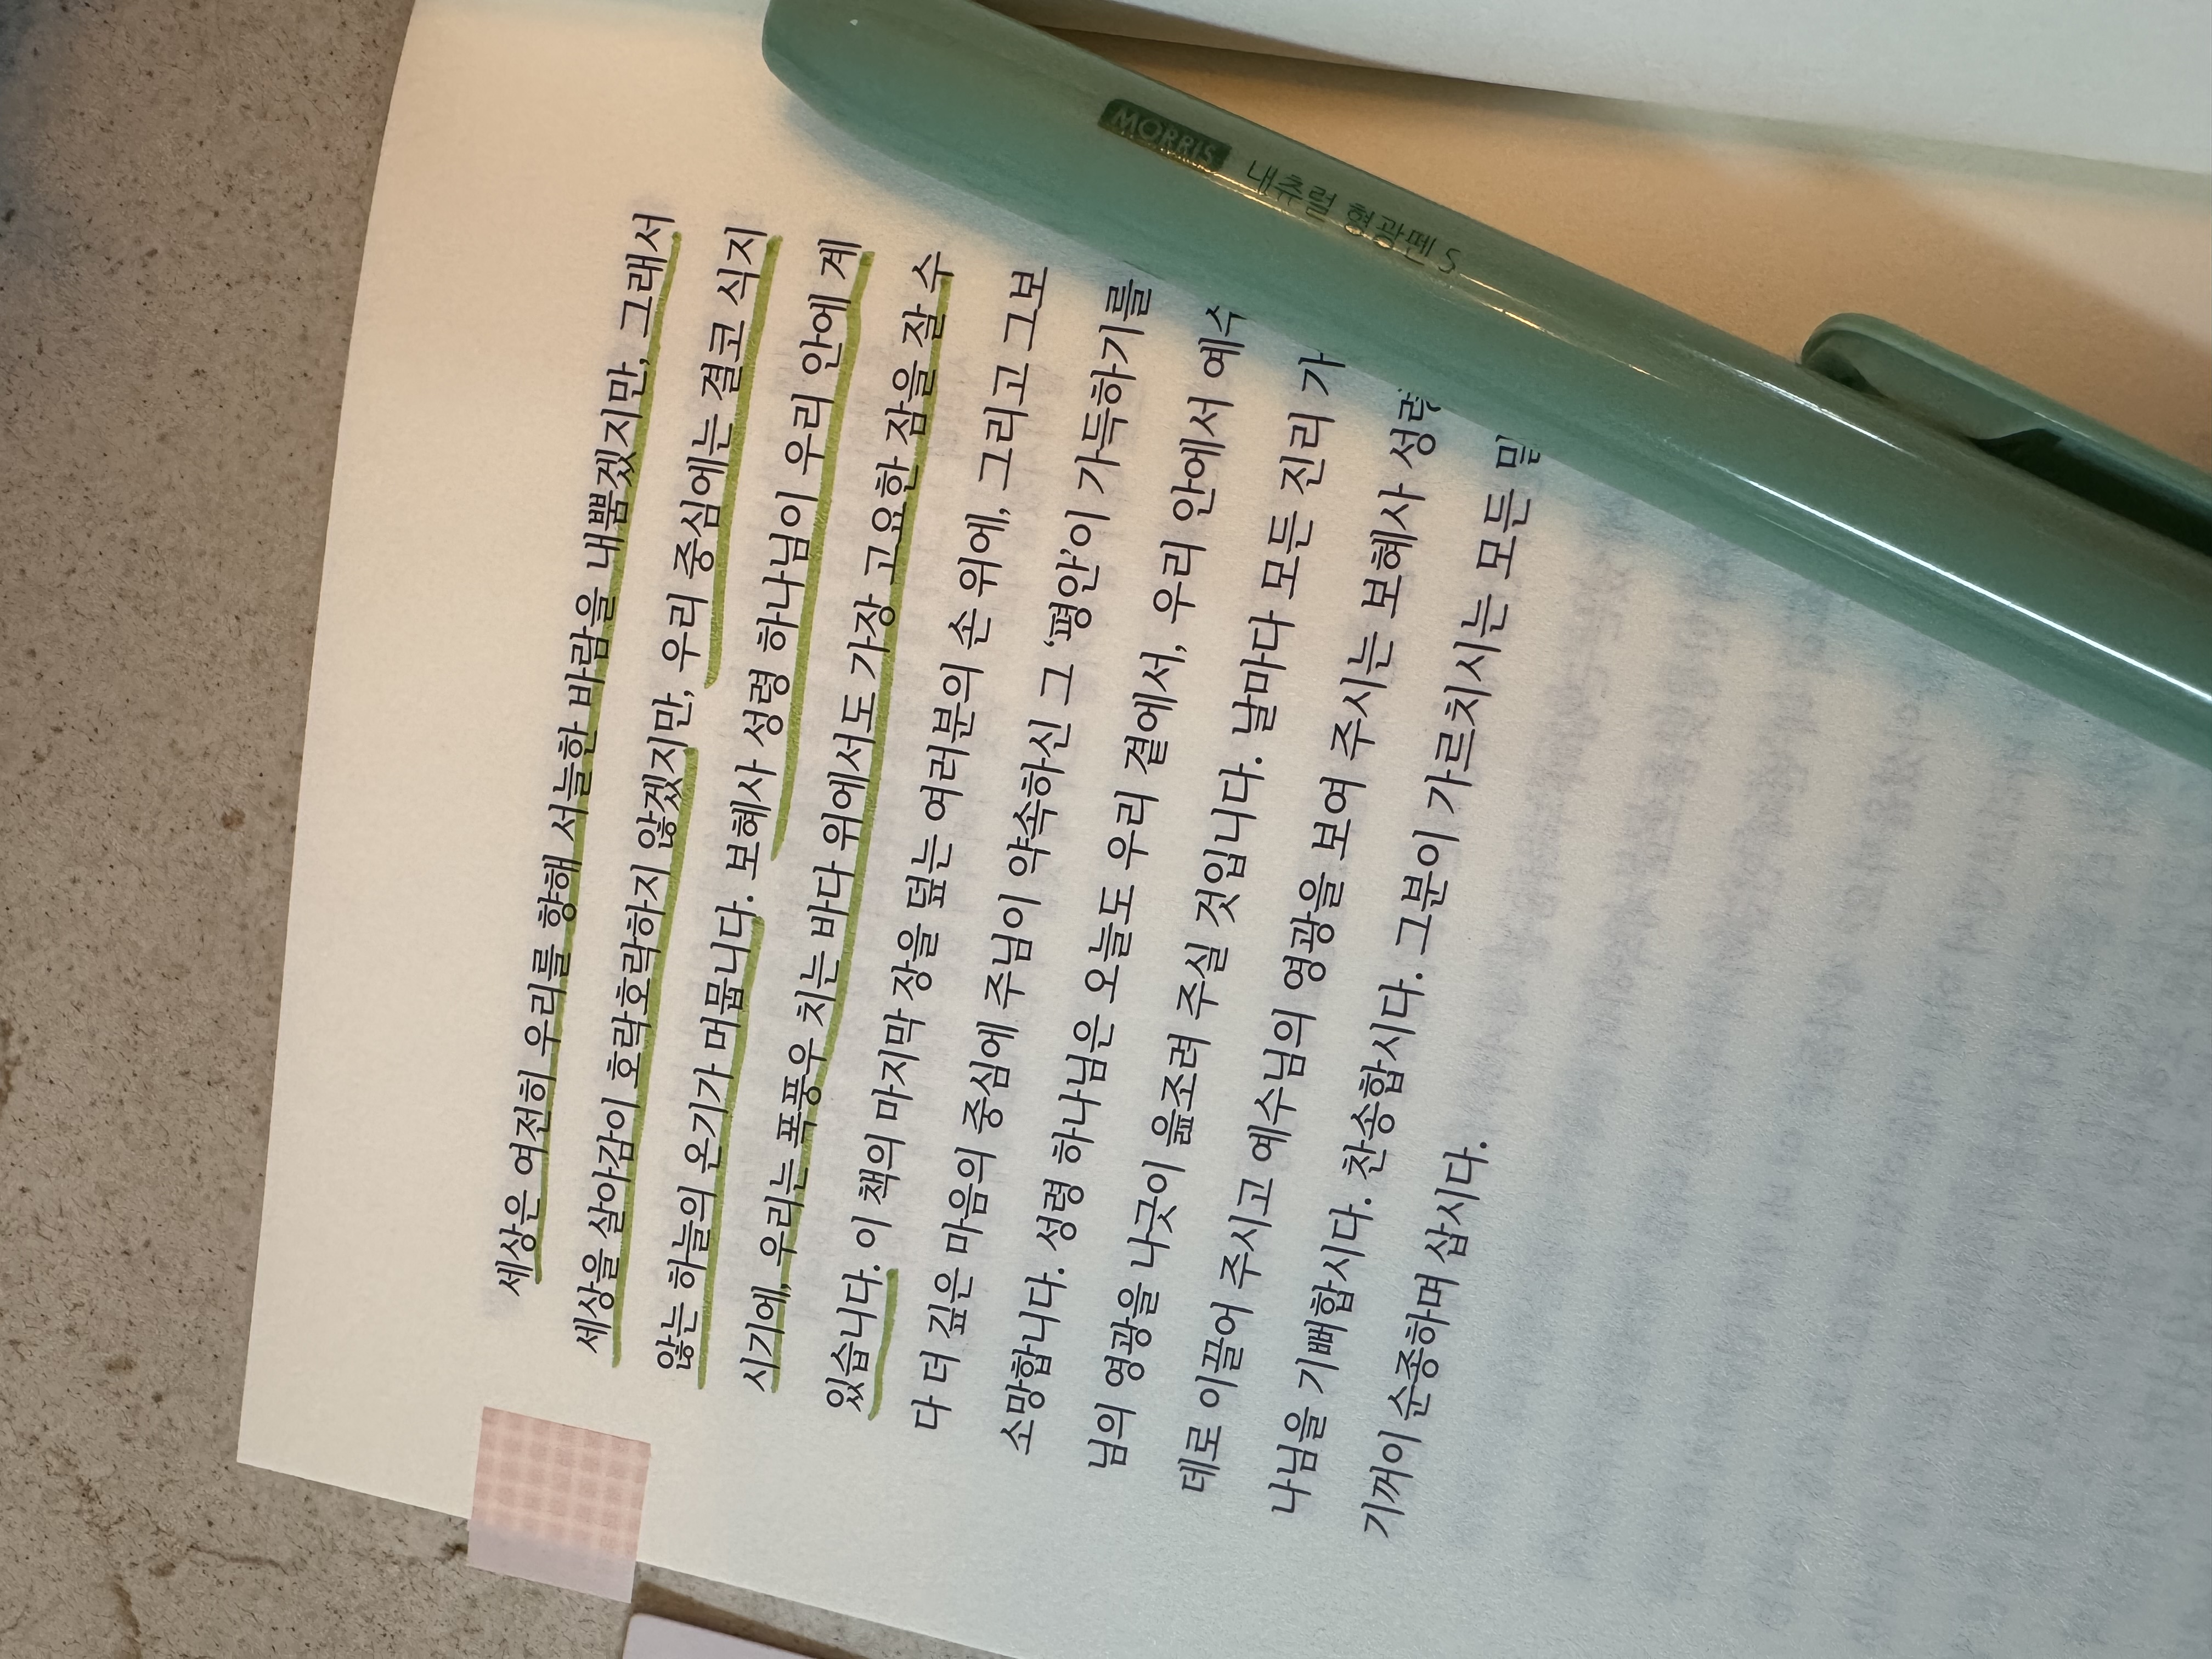 세상은 여전히 우리를 향해 서늘한 바람을 내뿜겠지만, 그래서
세상을 살아감이 호락호락하지 않겠지만, 우리 중심에는 결코 식지
않는 하늘의 온기가 머뭅니다. 보혜사 성령 하나님이 우리 안에 계
시기에, 우리는 폭풍우 치는 바다 위에서도 가장 고요한 잠을 잘 수
있습니다. 이 책의 마지막 장을 덮는 여러분의 손 위에, 그리고 그보
다 더 깊은 마음의 중심에 주님이 약속하신 그 ‘평안’이 가득하기를
소망합니다. 성령 하나님은 오늘도 우리 곁에서, 우리 안에서 예수
님의 영광을 나긋이 읊조려 주실 것입니다. 날마다 모든 진리 가
데로 이끌어 주시고 예수님의 영광을 보여 주시는 보혜사 성령
나님을 기뻐합시다. 찬송합시다. 그분이 가르치시는 모든
기꺼이 순종하며 삽시다.
MORRIS 내추럴 형광펜 S